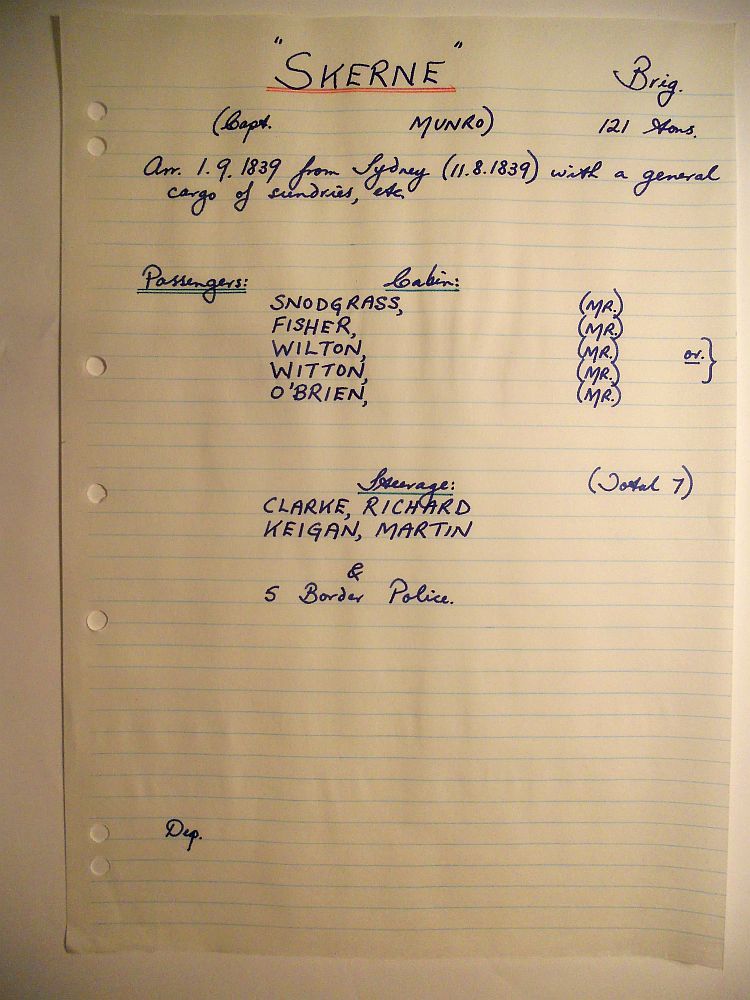 "SKERNE" Brig.
(Capt. MUNRO) 121 tons.
Arr. 1.9.1839 from Sydney (11.8.1839) with a general
cargo of sundries, etc.
Passengers: Cabin:
SNODGRASS, (MR.)
FISHER, (MR.)
WILTON, (MR.) or }
WITTON, (MR.)
O'BRIEN, (MR.)
Steerage: (Total 7)
CLARKE, RICHARD
KEIGAN, MARTIN
&
5 Border Police.
Dep.